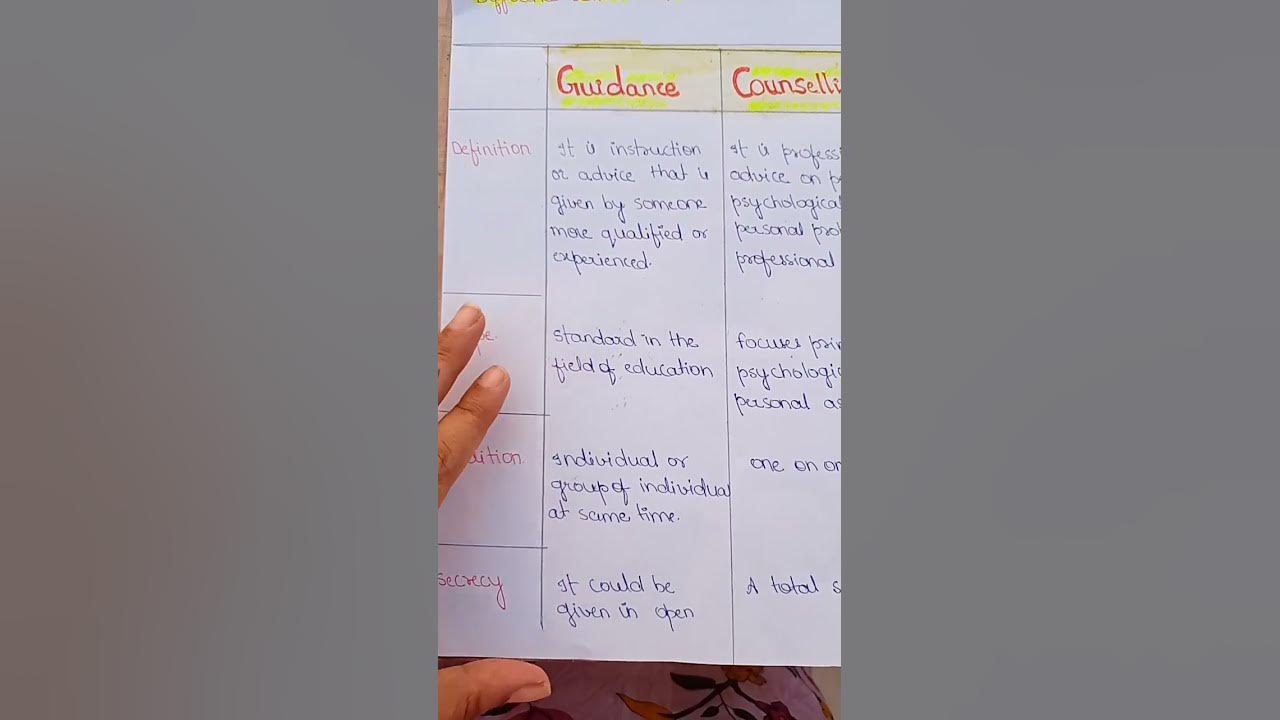 Guidance
Counselli
Definition
It is instruction
or advice that is
given by someone
more qualified or
experienced.
It is professi
advice on p
psychological
personal pro
professional
standard in the
field of education
focuses prin
psychologic
personal as
Individual or
group of individual
at same time.
one on on
secrecy
It could be
given in open
A total s